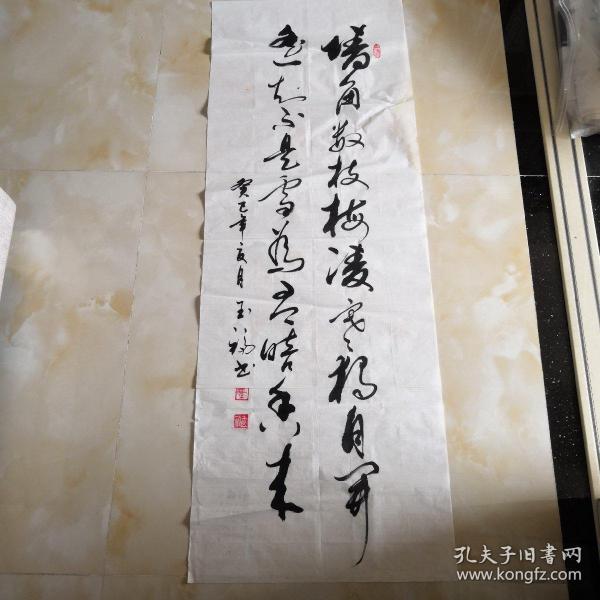 墙角数枝梅凌寒独自开
遥知不是雪为有暗香来
癸巳年夏月玉福书
孔夫子旧书网
www.kongfz.com